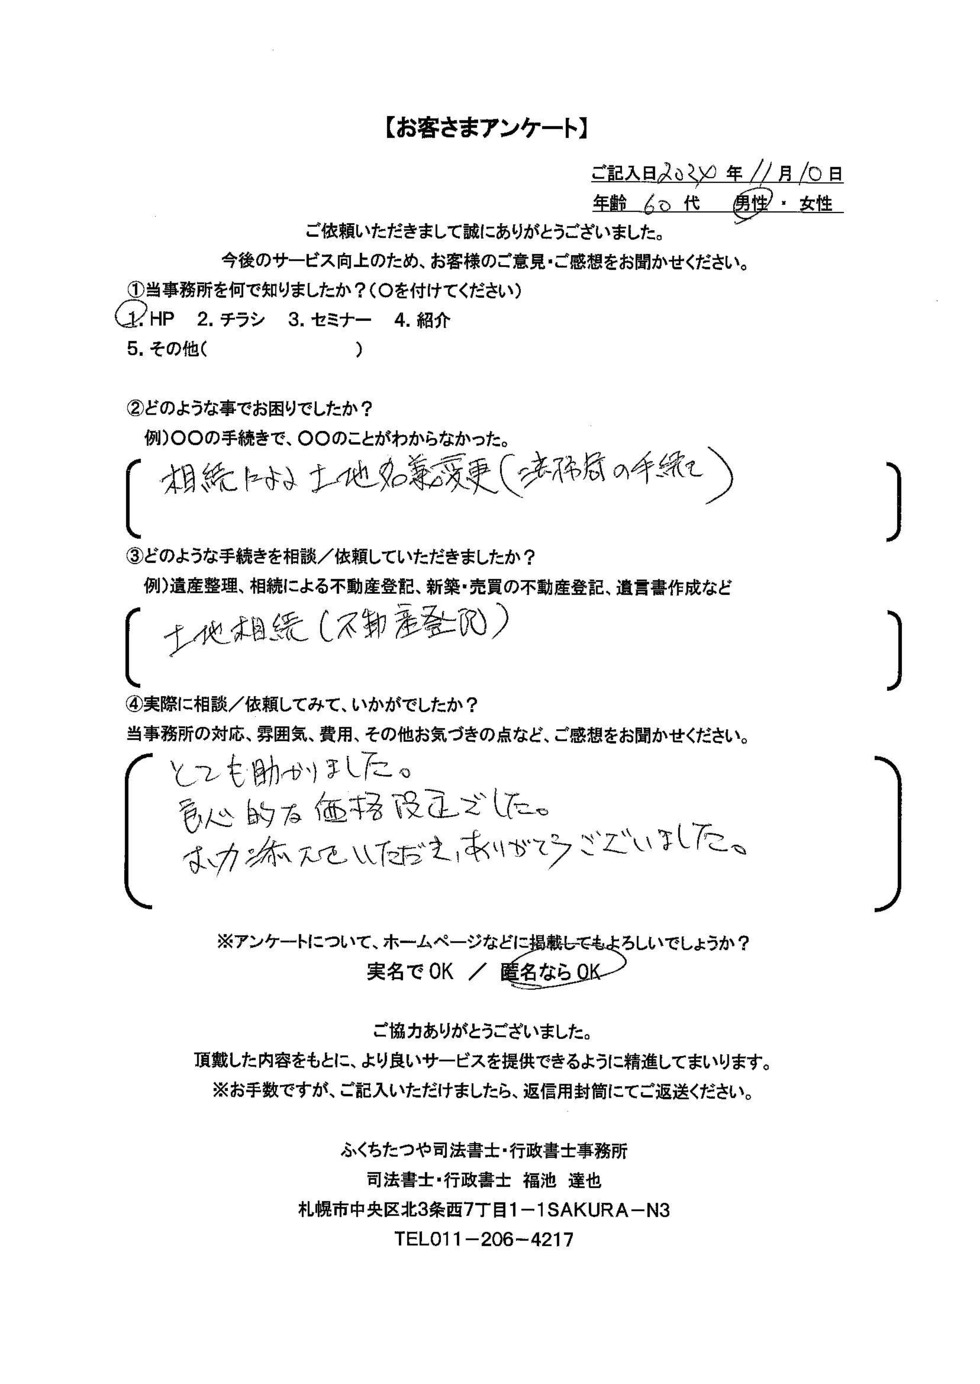 【お客さまアンケート】
ご記入日2024年11月10日
年齢 60代 男性・女性
ご依頼いただきまして誠にありがとうございました。
今後のサービス向上のため、お客様のご意見・ご感想をお聞かせください。
①当事務所を何で知りましたか？（○を付けてください）
1. HP 2. チラシ 3. セミナー 4. 紹介
5. その他( )
②どのような事でお困りでしたか？
例)〇〇の手続きで、〇〇のことがわからなかった。
相続による土地名義変更(法務局の手続き)
③どのような手続きを相談／依頼していただきましたか？
例)遺産整理、相続による不動産登記、新築・売買の不動産登記、遺言書作成など
土地相続(不動産登記)
④実際に相談／依頼してみて、いかがでしたか？
当事務所の対応、雰囲気、費用、その他お気づきの点など、ご感想をお聞かせください。
とても助かりました。
良心的な価格設定でした。
お力添えをいただき、ありがとうございました。
※アンケートについて、ホームページなどに掲載してもよろしいでしょうか？
実名でOK ／ 匿名ならOK
ご協力ありがとうございました。
頂戴した内容をもとに、より良いサービスを提供できるように精進してまいります。
※お手数ですが、ご記入いただけましたら、返信用封筒にてご返送ください。
ふくちたつや司法書士・行政書士事務所
司法書士・行政書士 福池 達也
札幌市中央区北3条西7丁目1－1SAKURA－N3
TEL011－206－4217